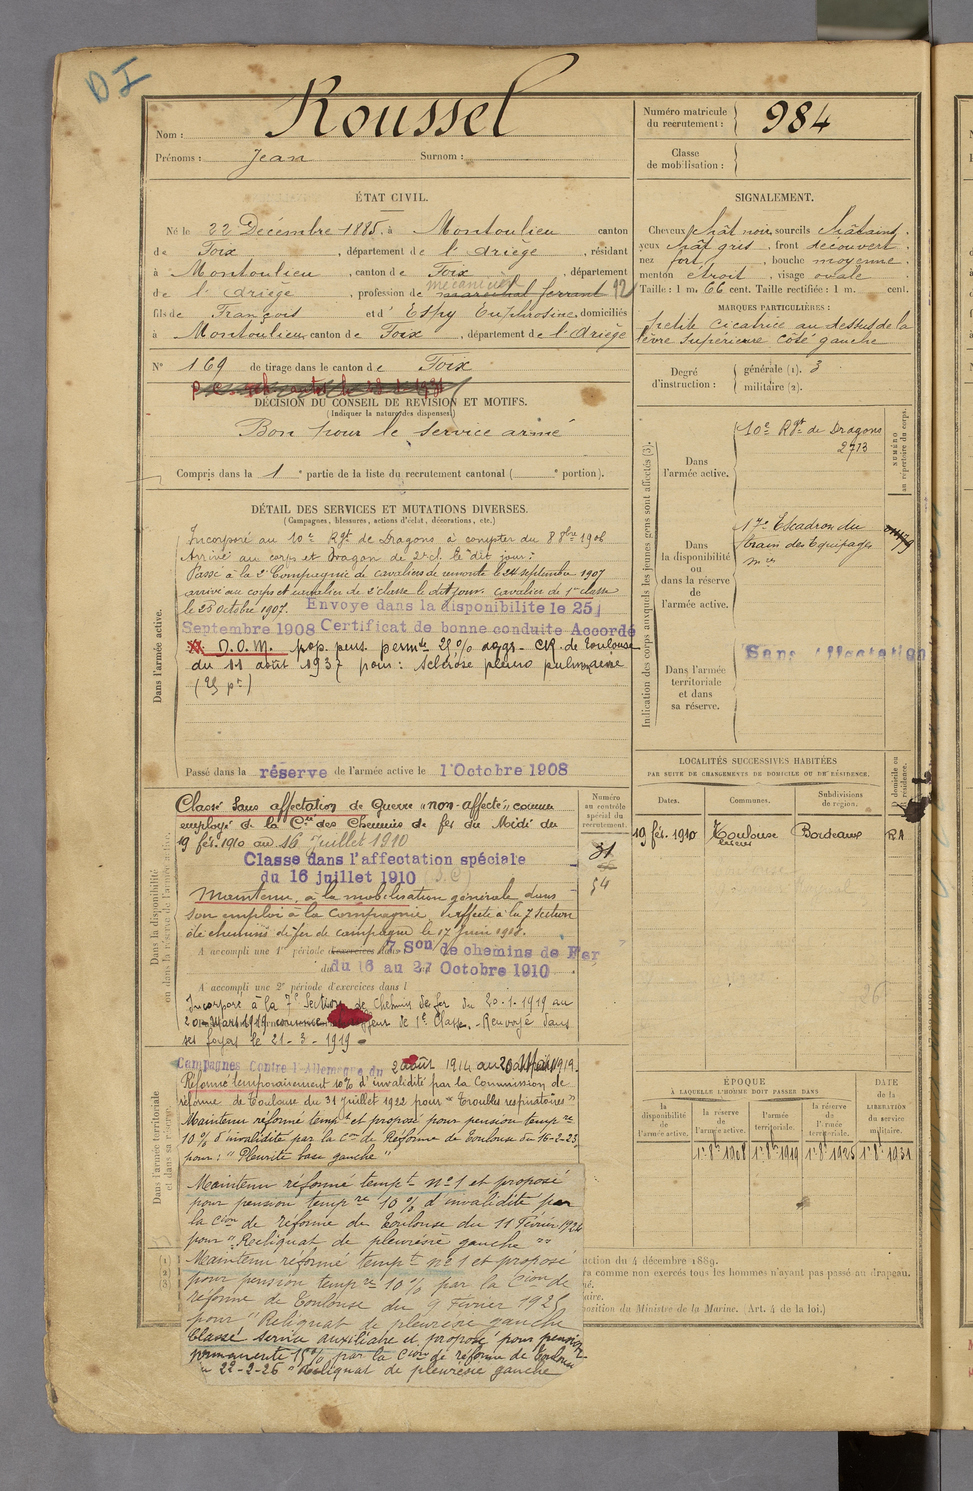 D I
Nom : Roussel
Prénoms : Jean Surnom :
Numéro matricule du recrutement : 984
Classe de mobilisation :
ÉTAT CIVIL.
Né le 22 Décembre 1885, à Montoulieu canton
de Foix, département de l'Ariège, résidant
à Montoulieu, canton de Foix, département
mécanicien
de l'Ariège, profession de maréchal ferrant 12
fils de François et d'Espy Euphrosine, domiciliés
à Montoulieu, canton de Foix, département de l'Ariège
N° 169 de tirage dans le canton de Foix
DÉCISION DU CONSEIL DE REVISION ET MOTIFS.
(Indiquer la nature des dispenses)
Bon pour le service armé
Compris dans la 1 e partie de la liste du recrutement cantonal ( e portion).
SIGNALEMENT.
Cheveux chât noir, sourcils châtains,
yeux chât gris, front découvert,
nez fort, bouche moyenne,
menton étroit, visage ovale
Taille : 1 m. 66 cent. Taille rectifiée : 1 m. cent.
MARQUES PARTICULIÈRES :
petite cicatrice au dessus de la
lèvre supérieure côté gauche
Degré d'instruction : générale (1). 3
militaire (2).
DÉTAIL DES SERVICES ET MUTATIONS DIVERSES.
(Campagnes, blessures, actions d'éclat, décorations, etc.)
Dans l'armée active.
Incorporé au 10e Rgt de Dragons à compter du 8 8bre 1906
Arrivé au corps et Dragon de 2e cl. le dit jour.
Passé à la 2e Compagnie de cavaliers de remonte le 24 septembre 1907
arrivé au corps et cavalier de 2e classe le dit jour. cavalier de 1re classe
le 28 octobre 1907. Envoyé dans la disponibilité le 25
Septembre 1908 Certificat de bonne conduite Accordé
D.O.M. prop. pens. permte 25 % aggr. CR de Toulouse
du 11 août 1937 pour : Sclérose pleuro pulmonaire
Passé dans la réserve de l'armée active le 1 Octobre 1908
Indication des corps auxquels les jeunes gens sont affectés (3).
NUMÉRO au répertoire du corps.
Dans l'armée active.
10e Rgt de Dragons
2713
Dans la disponibilité ou dans la réserve de l'armée active.
17e Escadron du
train des Equipages
mres
Dans l'armée territoriale et dans sa réserve.
Sans affectation
Dans la disponibilité ou dans la réserve de l'armée active.
Numéro au contrôle spécial du recrutement.
31
54
Classé sans affectation de Guerre "non-affecté", comme
employé de la Cie des Chemins de fer du Midi du
19 fév. 1910 au 16 juillet 1910
Classe dans l'affectation spéciale
du 16 juillet 1910
Maintenu, à la mobilisation générale dans
son emploi à la Compagnie, affecté à la 7 section
de chemins de fer de campagne le 17 juin 1918.
A accompli une 1re période d'exercices dans 7 Son de chemins de Fer
du 16 au 27 Octobre 1910
A accompli une 2e période d'exercices dans l
Incorporé à la 7e Section de Chemin de fer du 20-1-1919 au
20 Mars 1919 comme chauffeur de 1e Classe. Renvoyé dans
ses foyers le 21-3-1919.
Dans l'armée territoriale et dans sa réserve.
Campagnes Contre l'Allemagne du 2 août 1914 au 20 Mars 1919.
Réformé temporairement 10% d'invalidité par la Commission de
réforme de Toulouse du 31 juillet 1922 pour "troubles respiratoires"
Maintenu réformé tempt et proposé pour pension tempre
10 % d'invalidité par la Cion de Réforme de Toulouse du 16-2-23
pour : "Pleurite base gauche"
Maintenu réformé tempt n°1 et proposé
pour pension tempre 10 % d'invalidité par
la Cion de réforme de Toulouse du 11 Février 1924
pour "Reliquat de pleurésie gauche"
Maintenu réformé tempt n°1 et proposé
pour pension tempre 10 % par la Cion de
réforme de Toulouse du 9 Février 1925
pour "Reliquat de pleurésie gauche
Classé service auxiliaire et proposé pour pension
permanente 15% par la Cion de réforme de Toulouse
22-2-26 "Reliquat de pleurésie gauche
LOCALITÉS SUCCESSIVES HABITÉES
PAR SUITE DE CHANGEMENTS DE DOMICILE OU DE RÉSIDENCE.
Dates. Communes. Subdivisions de région. D domicile ou R résidence.
19 fév. 1910 Toulouse Bordeaux RA
ÉPOQUE
À LAQUELLE L'HOMME DOIT PASSER DANS
DATE de la LIBÉRATION du service militaire.
la disponibilité de l'armée active. la réserve de l'armée active. l'armée territoriale. la réserve de l'armée territoriale.
1er 8bre 1908 1er 8bre 1919 1er 8bre 1925 1er 8bre 1931
(1)
(2)
(3)
uction du 4 décembre 1889.
ra comme non exercés tous les hommes n'ayant pas passé au drapeau.
osition du Ministre de la Marine. (Art. 4 de la loi.)